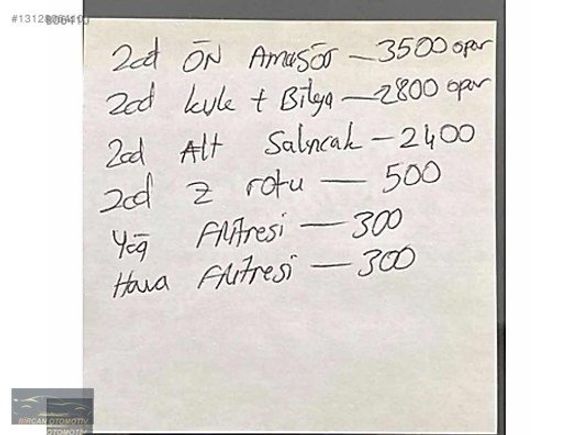 2ad ÖN Amasör - 3500 opar
2ad kule + Bilya - 2800 opar
2ad Alt Salıncak - 2400
2ad Z rotu - 500
Yağ Filitresi - 300
Hava Filitresi - 300
BİRCAN OTOMOTİV
OTOMOTİV